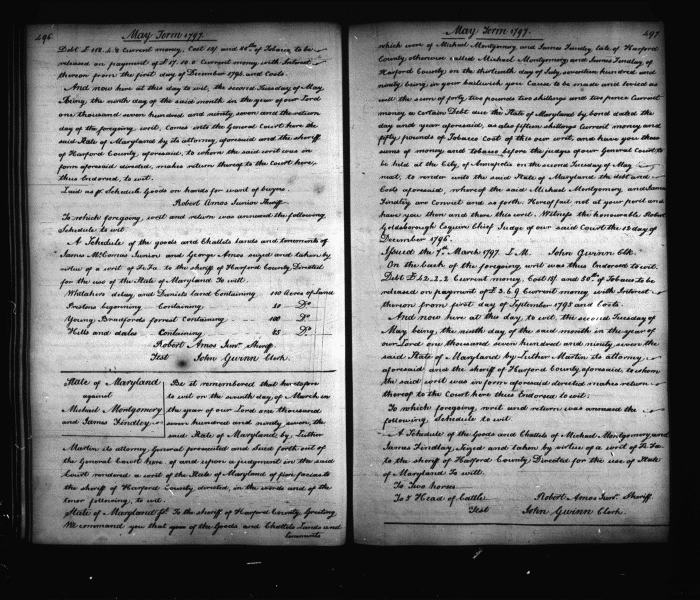 496
May Term 1797.
Debt £ 118.4.8 Current money, Cost 15/ and 80lb of Tobacco to be
released on payment of £ 17.10.0 Current money with Interest
thereon from the first day of December 1795 and Costs.
And now here at this day to wit, the second Tuesday of May
Being, the ninth day of the said month in the year of our Lord
one thousand seven hundred and ninety seven and the return
day of the foregoing writ, comes into the General Court here the
said State of Maryland by its attorney, aforesaid and the sheriff
of Harford County, aforesaid, to whom the said writ was in
form aforesaid directed, makes return thereof to the Court here,
thus Endorsed, to wit.
Laid as pr. Schedule Goods on hands for want of buyers.
Robert Amos Junior Sheriff.
To which foregoing, writ and return was annexed the following,
Schedule to wit
A Schedule of the goods and Chattels lands and tenements of
James McComas Junior and George Amos seized and taken by
virtue of a writ of Fi. Fa. to the sheriff of Harford County Directed
for the use of the State of Maryland To wit.
Whitakers delay, and Daniels land Containing 100 Acres of Land
Prestons beginning - Containing 20 Do
Young Bradfords forrest Containing 100 Do
Hills and dales - Containing 85 Do
Robert Amos Junr. Sheriff.
Test John Gwinn Clerk.
State of Maryland
against
Michael Montgomery
and James Findley
Be it remembered that heretofore
to wit on the seventh day, of March in
the year of our Lord one thousand
seven hundred and ninety seven, the
said State of Maryland by Luther
Martin its attorney General prosecuted and sued forth out of
the General Court here of and upon a judgment in the said
Court rendered a writ of the State of Maryland of fieri facias to
the sheriff of Harford County directed, in the words and of the
tenor following, to wit.
State of Maryland ss. To the sheriff of Harford County Greeting
We command you that your of the Goods and Chattels Lands and
tenements
497
May Term 1797.
which were of Michael Montgomery and James Findley late of Harford
County, otherwise called Michael Montgomery and James Findley, of
Harford County on the thirteenth day of July, seventeen hundred and
ninety being, in your bailiwick you Cause to be made and levied as
will the sum of forty, two pounds two shillings and two pence Current
money a certain Debt due the State of Maryland by bond dated the
day and year aforesaid, as also fifteen shillings Current money and
fifty, pounds of Tobacco Cost of this our writ and have you those
sums of money and tobacco before the judges of our General Court to
be held at the City of Annapolis on the second Tuesday of May
next, to render unto the said State of Maryland the debt and
Costs aforesaid, whereof the said Michael Montgomery, and James
Findley are Convict and so forth. Hereof fail not at your peril and
have you then and there this writ. Witness the honourable Robert
Goldsborough Esquire Chief Judge of our said Court the 12 day of
December 1796.
Issued the 7th. March 1797. L M. John Gwinn Clk.
On the back of the foregoing, writ was thus Endorsed to wit.
Debt £ 42.2.2 Current money, Cost 15/ and 50lb of Tobacco to be
released on payment of £ 3.6.9 Current money with Interest
thereon from first day of September 1795 and Costs.
And now here at this day, to wit, the second Tuesday of
May being, the ninth day of the said month in the year of
our Lord one thousand seven hundred and ninety seven the
said State of Maryland by Luther Martin its attorney
aforesaid and the sheriff of Harford County, aforesaid, to whom
the said writ was in form aforesaid directed makes return
thereof to the Court here thus Endorsed to wit:
To which foregoing writ and return was annexed the
following, Schedule to wit
A Schedule of the Goods and Chattels of Michael Montgomery, and
James Findlay, seized and taken by virtue of a writ of Fi. Fa.
to the sheriff of Harford County, Directed for the use of State
of Maryland To wit.
To Two horses
To 5 Head of Cattle
Robert Amos Junr. Sheriff.
Test John Gwinn Clerk.